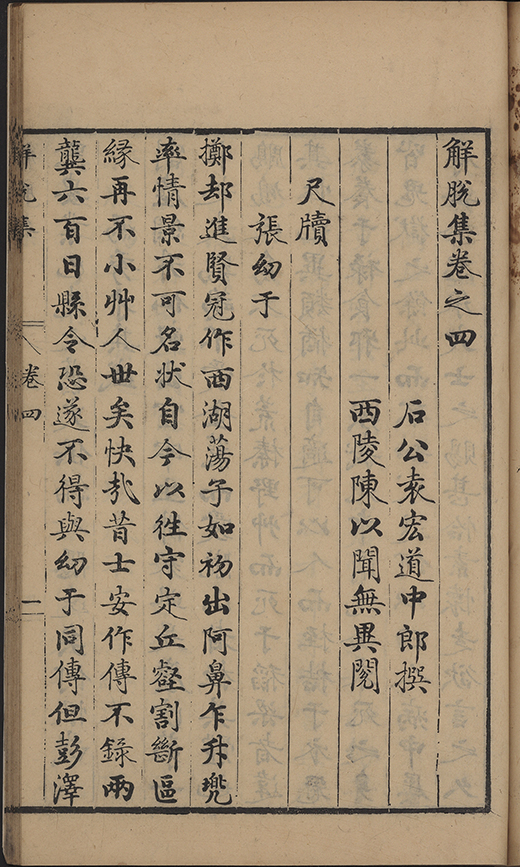 解脫集卷之四
石公袁宏道中郎撰
西陵陳以聞無異閱
尺牘
張幼于
擲却進賢冠作西湖蕩子如初出阿鼻乍升兜
率情景不可名狀自今以往守定丘壑割斷區
緣再不小艸人世矣快哉昔士安作傳不錄兩
龔六百日縣令恐遂不得與幼于同傳但彭澤
解脫集
卷四
一